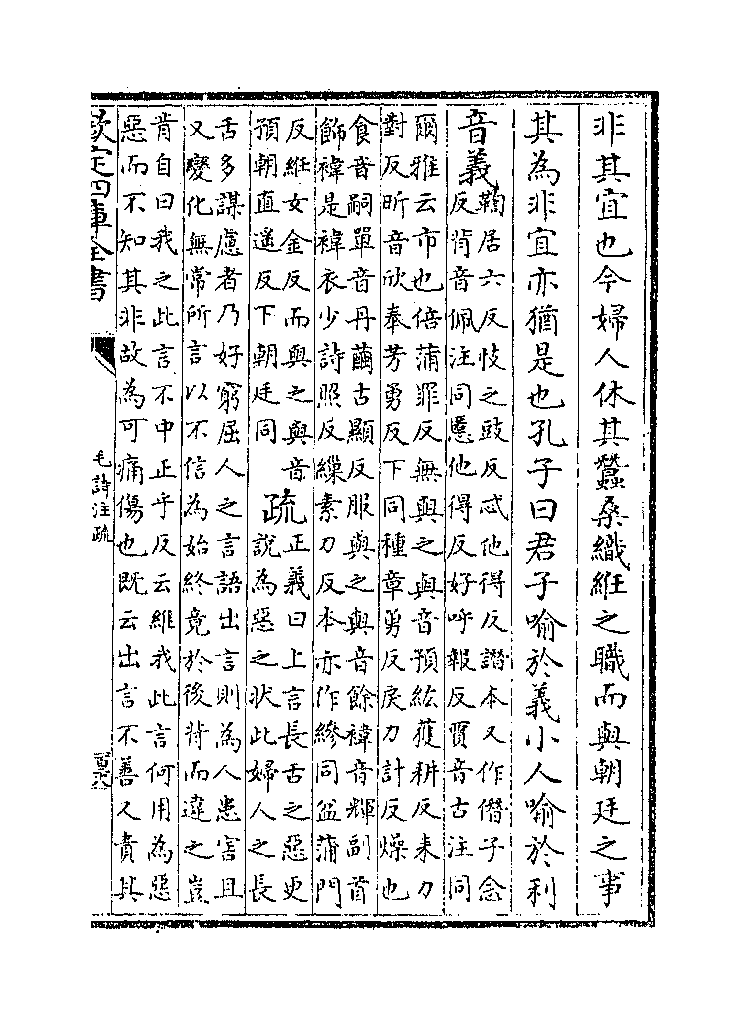 非其宜也今婦人休其蠶桑織紝之職而與朝廷之事
其為非宜亦猶是也孔子曰君子喻於義小人喻於利
音義
鞫居六反忮之豉反忒他得反譖本又作僭子念
反背音佩注同慝他得反好呼報反賈音古注同
爾雅云市也倍蒲罪反無與之與音預紘獲耕反耒力
對反昕音欣奉芳勇反下同種章勇反戾力計反燥也
食音嗣單音丹繭古顯反服與之與音餘褘音輝副首
飾褘是褘衣少詩照反繅素刀反本亦作繰同盆蒲門
反紝女金反而與之與音
預朝直遥反下朝廷同
疏
正義曰上言長舌之惡更
說為惡之狀此婦人之長
舌多謀慮者乃好窮屈人之言語出言則為人患害且
又變化無常所言以不信為始終竟於後背而違之豈
肯自曰我之此言不中正乎反云維我此言何用為惡
惡而不知其非故為可痛傷也既云出言不善又責其
欽定四庫全書
毛詩注疏